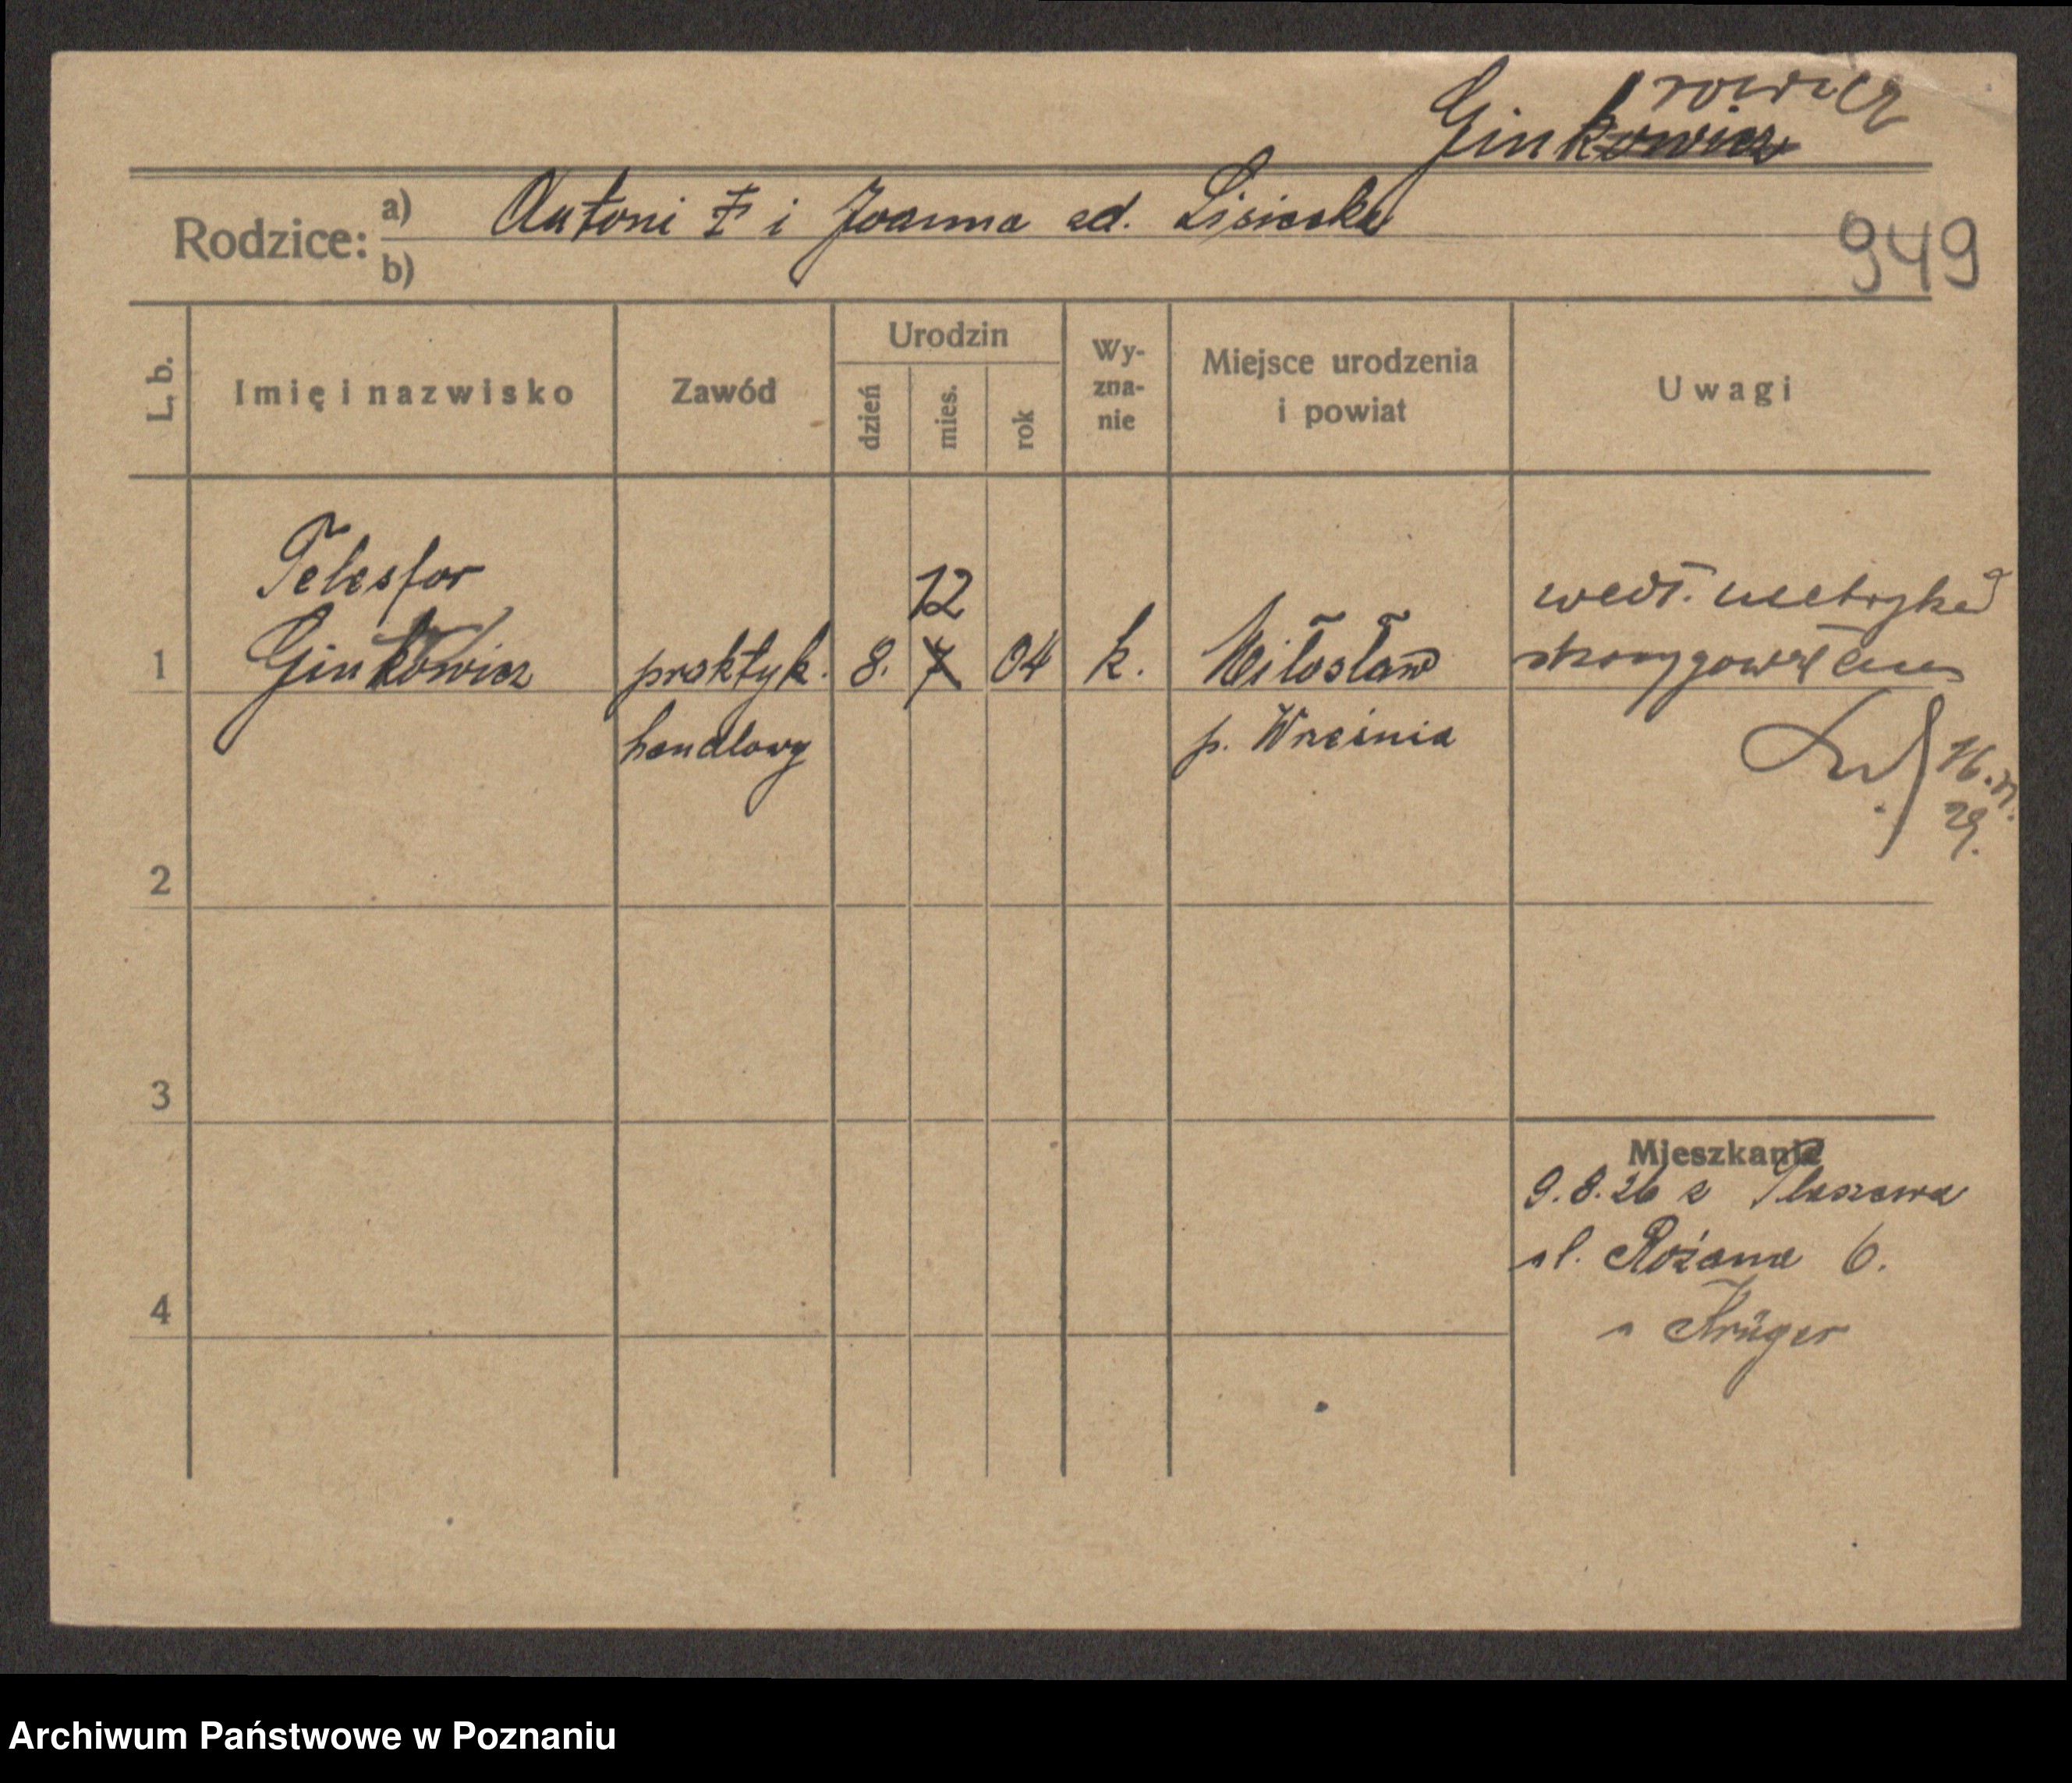 rowicz
Ginkowicz
Rodzice: a) Antoni † i Joanna zd. Lisiecka
b)
949
L. b.
Imię i nazwisko
Zawód
Urodzin
dzień
mies.
rok
Wy-
zna-
nie
Miejsce urodzenia
i powiat
Uwagi
Telesfor
12
wedł. metryki
1 Ginkowicz praktyk. 8. 7 04 k. Miłosław
skorygował
handlowy p. Września
16.
29.
2
3
Mieszkanie
9.8.26 z Pleszewa
ul. Różana 6.
4
u Krüger
Archiwum Państwowe w Poznaniu